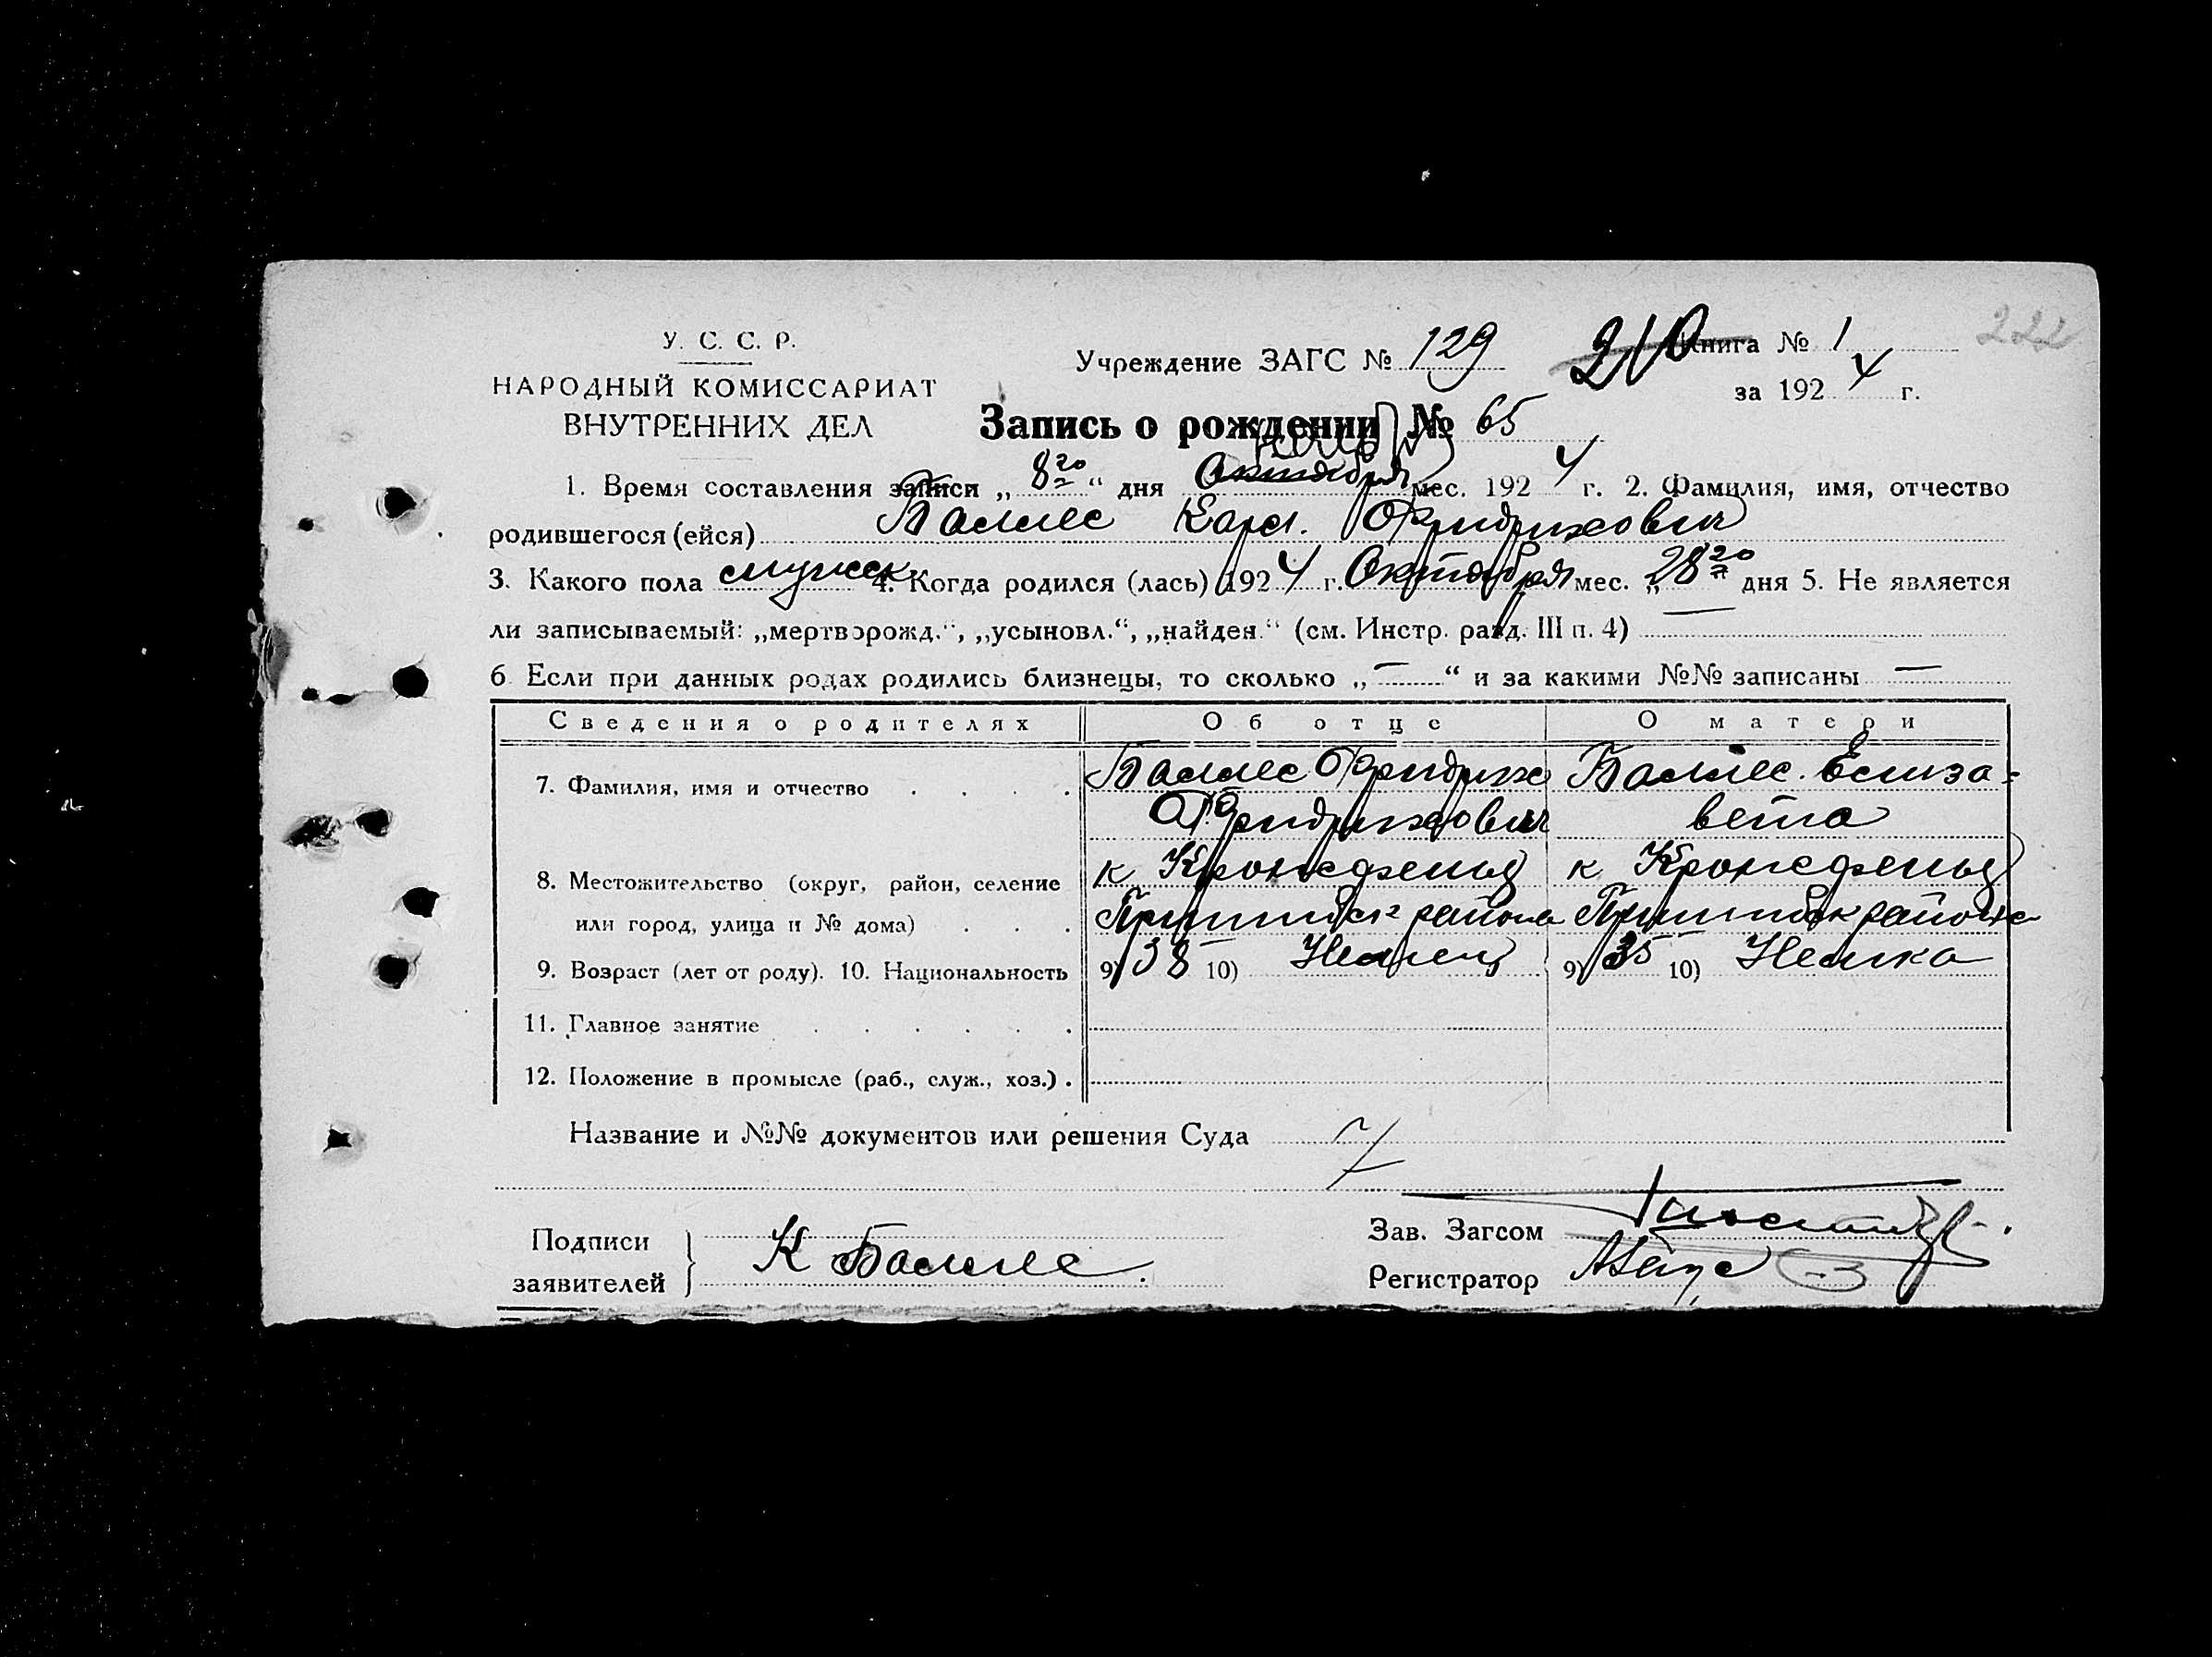 У. С. С. Р.
НАРОДНЫЙ КОМИССАРИАТ
ВНУТРЕННИХ ДЕЛ
Учреждение ЗАГС № 129
210 Книга № 1
222
за 1924 г.
Запись о рождении № 65
1. Время составления записи „8го“ дня Октября мес. 1924 г. 2. Фамилия, имя, отчество
родившегося (ейся) Баллес Карл. Фридрихович
3. Какого пола мужск 4. Когда родился (лась) 1924 г. Октября мес. „28го дня 5. Не является
ли записываемый: „мертворожд.“, „усыновл.“, „найден.“ (см. Инстр. разд. III п. 4) —
6 Если при данных родах родились близнецы, то сколько „—“ и за какими №№ записаны —
Сведения о родителях Об отце О матери
7. Фамилия, имя и отчество . . . . Баллес Фридрих Баллес. Елиза=
Фридрихович вета
8. Местожительство (округ, район, селение к Кронсфельд к Кронсфельд
или город, улица и № дома) . . . Пришибск района Пришибск района
9. Возраст (лет от роду). 10. Национальность 9) 38 10) Немец 9) 35 10) Немка
11. Главное занятие . . . . . .
12. Положение в промысле (раб., служ., хоз.) .
Название и №№ документов или решения Суда
Подписи
заявителей
К Баллес.
Зав. Загсом
Регистратор